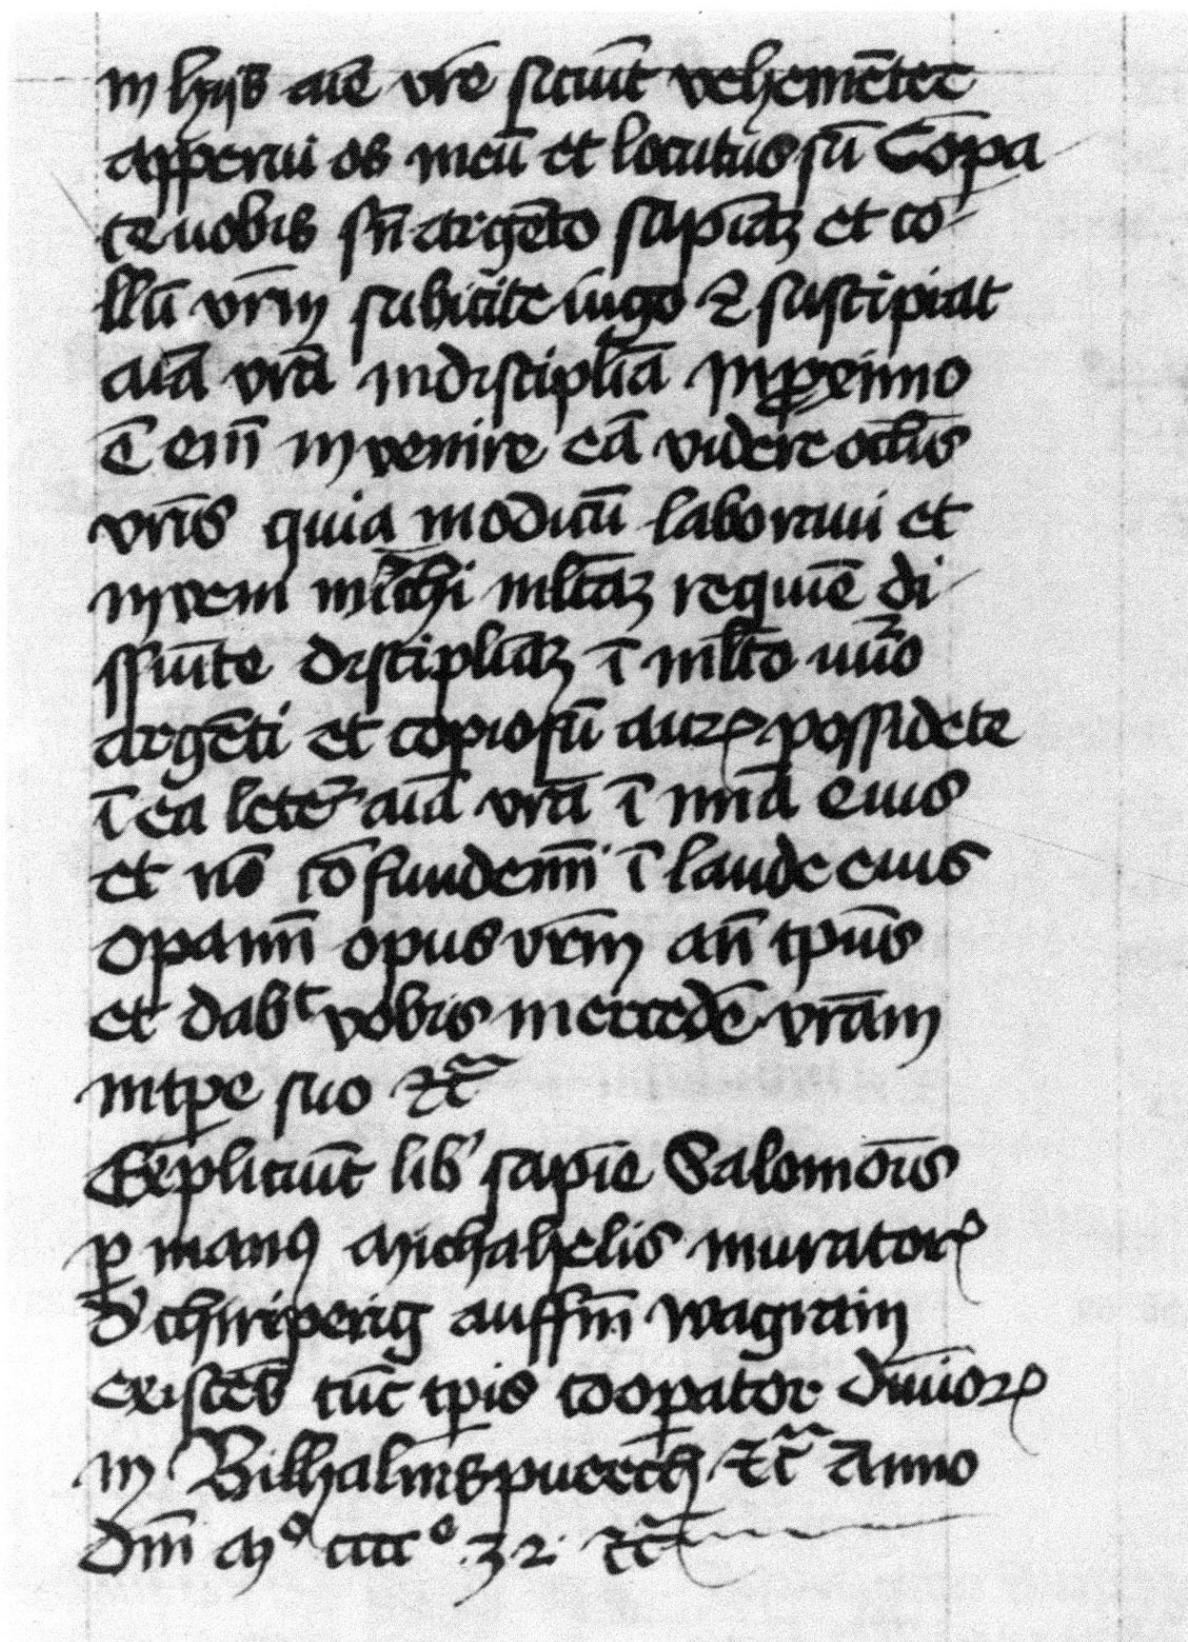 in hijs aīe vr̄e sitiūt vehemēter
apperui os meū et locutus sū Cōpa
te uobis sn̄ argēto sapiāȝ et co
llū vr̄m subicite iugo ⁊ suscipiat
aīā vrā indisciplīā in ꝓximo
ē em̄ invenire eā videte oclīs
vrīs quia modicū laboraui et
inveni michi ml̄tāȝ requiē di
ssūīte disciplīāȝ ī ml̄to nūo
argēti et copiosū aurꝝ possidete
ī ea letet᷑ aīā vrā ī mīā eius
et nō cōfundemī ī laude eius
opamī opus vr̄m an̄ tpūs
et dabᵗ vobis mercedē vrām
in tpe suo ⁊c̄
Expliciūt lib' sapīe Salomōis
ꝑ manꝰ Michahelis muratorꝭ
d' chirꝑerig auffm̄ wagrain
existēs tūc tꝑis cooꝑator dīuorꝝ
in Bilhalmspuerch ⁊c̄ Anno
dm̄ Mº ccccº 32 ⁊c̄